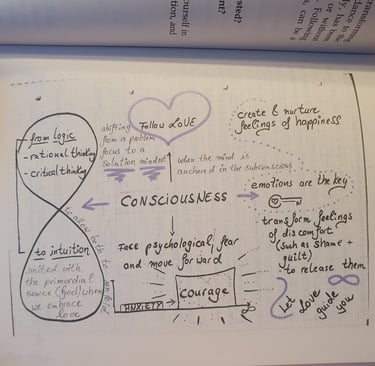 yourself in
tested?
ent?
can be a
Following
or without
from logic
- rational thinking
- critical thinking
to intuition
united with
the primordial
source (God) when
we embrace
love
to allow both to
unfold
shifting
from a problem
focus to a
solution mindset
Follow LOVE
when the mind is
anchored in the subconscious
create & nurture
feelings of happiness
CONSCIOUSNESS
emotions are the key
transform feelings
of discomfort
(such as shame +
guilt)
to release them
Face psychological fear
and move forward
ANXIETY
courage
Let
Love
guide
you